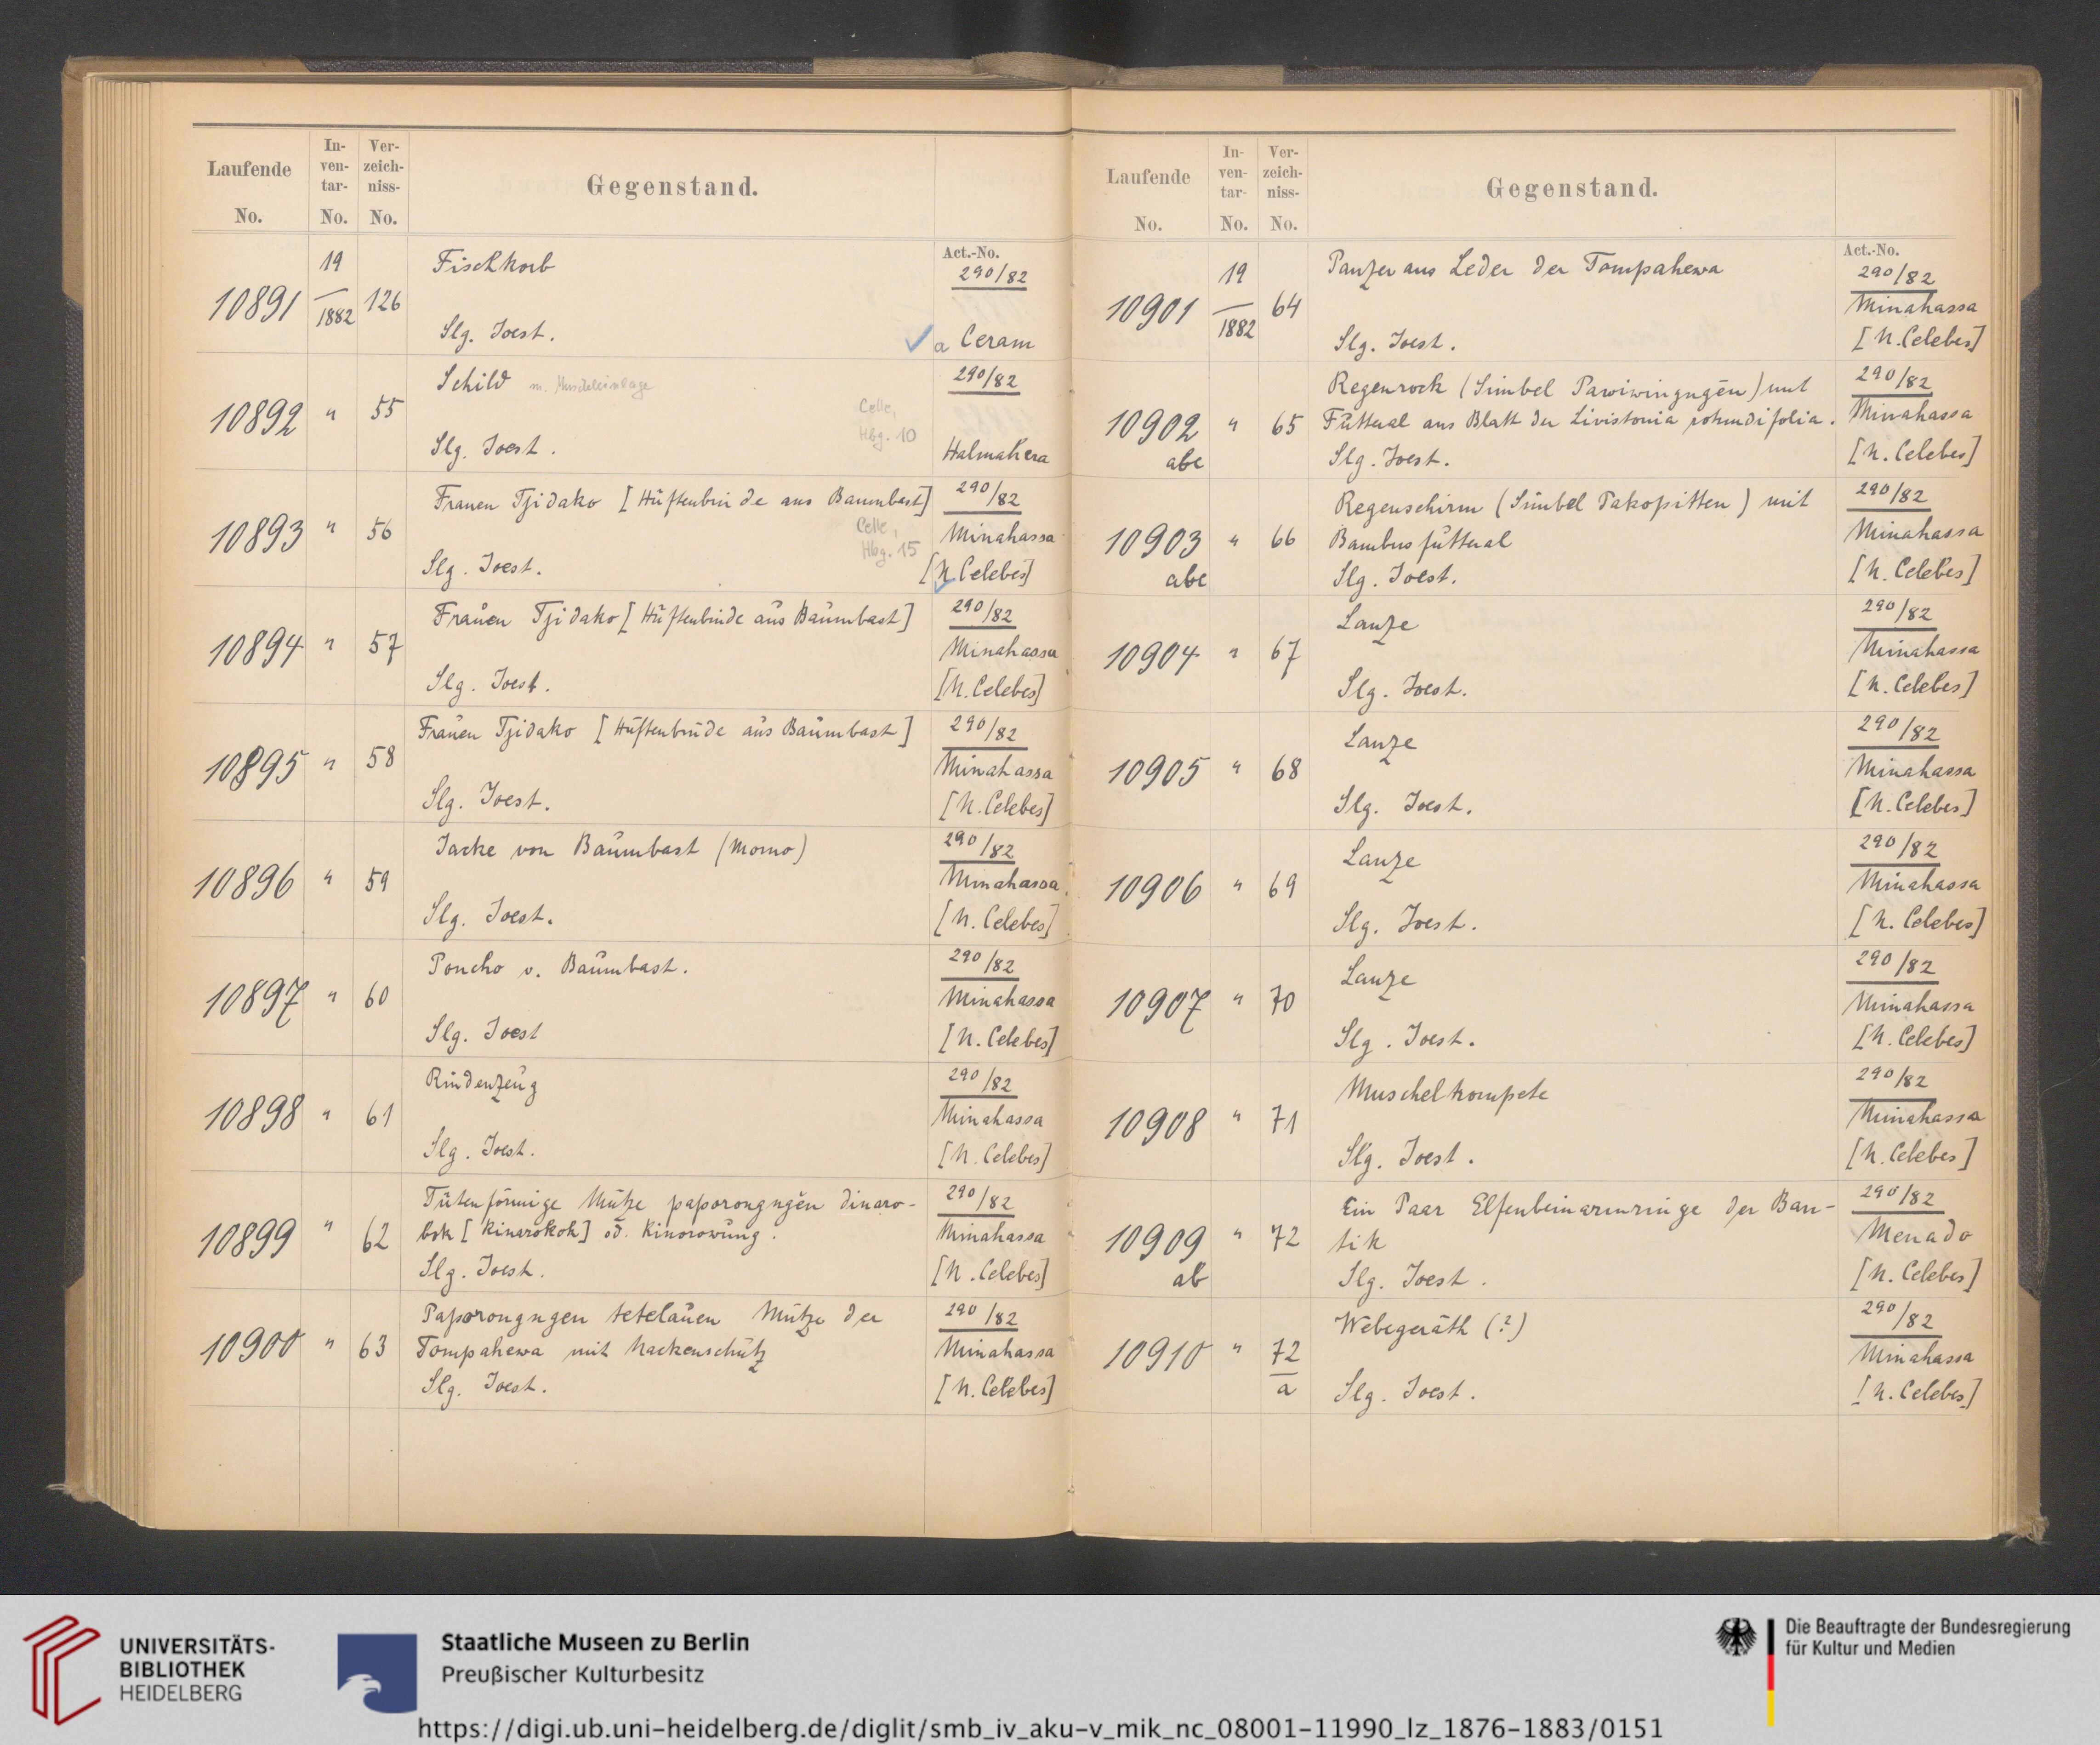 Laufende No.
In-ven-tar-No.
Ver-zeich-niss-No.
Gegenstand.
10891
19/1882
126
Fischkorb
Slg. Joest.
Act.-No.
290/82
a Ceram
10892
"
55
Schild m. Muscheleinlage
Celle,
Hbg. 10
Slg. Joest.
290/82
Halmahera
10893
"
56
Frauen Tjidako [Hüftenbinde aus Baumbast]
Celle,
Hbg. 15
Slg. Joest.
290/82
Minahassa
[N. Celebes]
10894
"
57
Frauen Tjidako [Hüftenbinde aus Baumbast]
Slg. Joest.
290/82
Minahassa
[N. Celebes]
10895
"
58
Frauen Tjidako [Hüftenbinde aus Baumbast]
Slg. Joest.
290/82
Minahassa
[N. Celebes]
10896
"
59
Jacke von Baumbast (Momo)
Slg. Joest.
290/82
Minahassa
[N. Celebes]
10897
"
60
Poncho v. Baumbast.
Slg. Joest
290/82
Minahassa
[N. Celebes]
10898
"
61
Rindenzeug
Slg. Joest.
290/82
Minahassa
[N. Celebes]
10899
"
62
Tütenförmige Mütze paporongngěn dinaro-
kok [Kinarokok] od. Kinorowung.
Slg. Joest.
290/82
Minahassa
[N. Celebes]
10900
"
63
Paporongngen tetelauen Mütze der
Tompahewa mit Nackenschutz
Slg. Joest.
290/82
Minahassa
[N. Celebes]
Laufende No.
In-ven-tar-No.
Ver-zeich-niss-No.
Gegenstand.
10901
19/1882
64
Panzer aus Leder der Tompahewa
Slg. Joest.
Act.-No.
290/82
Minahassa
[N. Celebes]
10902
abc
"
65
Regenrock (Simbel Pawiwingngěn) mit
Futteral aus Blatt der Livistonia rotundifolia.
Slg. Joest.
290/82
Minahassa
[N. Celebes]
10903
abc
"
66
Regenschirm (Simbel Takopitten) mit
Bambusfutteral
Slg. Joest.
290/82
Minahassa
[N. Celebes]
10904
"
67
Lanze
Slg. Joest.
290/82
Minahassa
[N. Celebes]
10905
"
68
Lanze
Slg. Joest.
290/82
Minahassa
[N. Celebes]
10906
"
69
Lanze
Slg. Joest.
290/82
Minahassa
[N. Celebes]
10907
"
70
Lanze
Slg. Joest.
290/82
Minahassa
[N. Celebes]
10908
"
71
Muscheltrompete
Slg. Joest.
290/82
Minahassa
[N. Celebes]
10909
ab
"
72
Ein Paar Elfenbeinarmringe der Ban-
tik
Slg. Joest.
290/82
Menado
[N. Celebes]
10910
"
72/a
Webegeräth (?)
Slg. Joest.
290/82
Minahassa
[N. Celebes]
UNIVERSITÄTS-
BIBLIOTHEK
HEIDELBERG
Staatliche Museen zu Berlin
Preußischer Kulturbesitz
Die Beauftragte der Bundesregierung
für Kultur und Medien
https://digi.ub.uni-heidelberg.de/diglit/smb_iv_aku-v_mik_nc_08001-11990_lz_1876-1883/0151